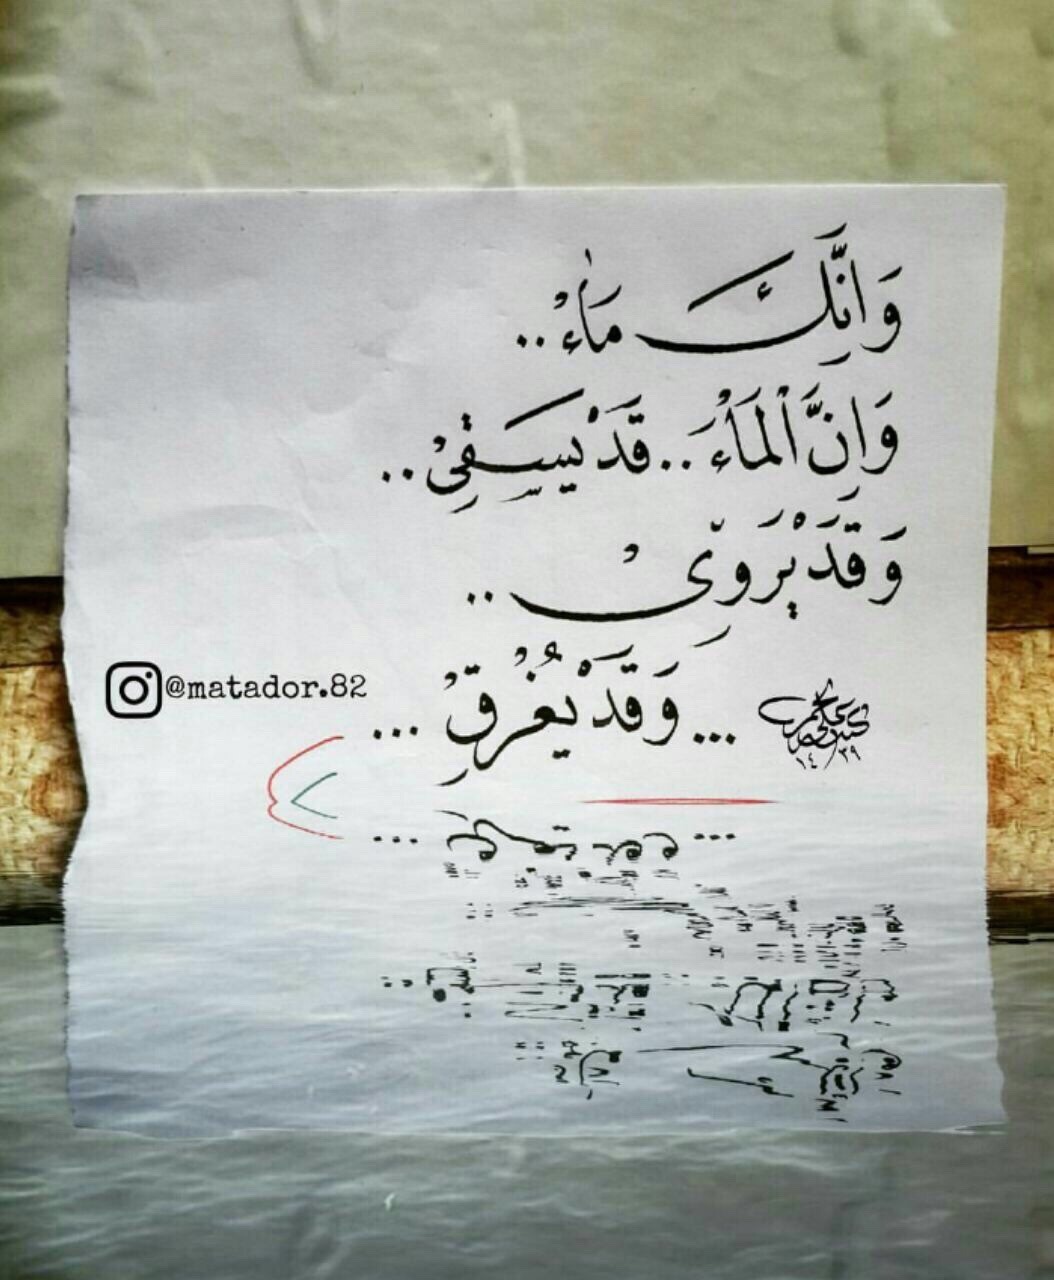 وَانَّكِ مَاءْ..
وَاِنَّ ٱلْمَاءَ.. قَدْ يَسْقِيْ..
وَقَدْ يَرْوِيْ..
... وَقَدْ يُغْرِقْ ...
@matador.82
١٤٣٩